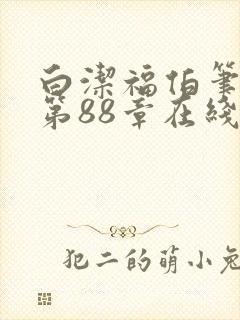 白潔福伯筆
第88章在綫
犯二的萌小兔